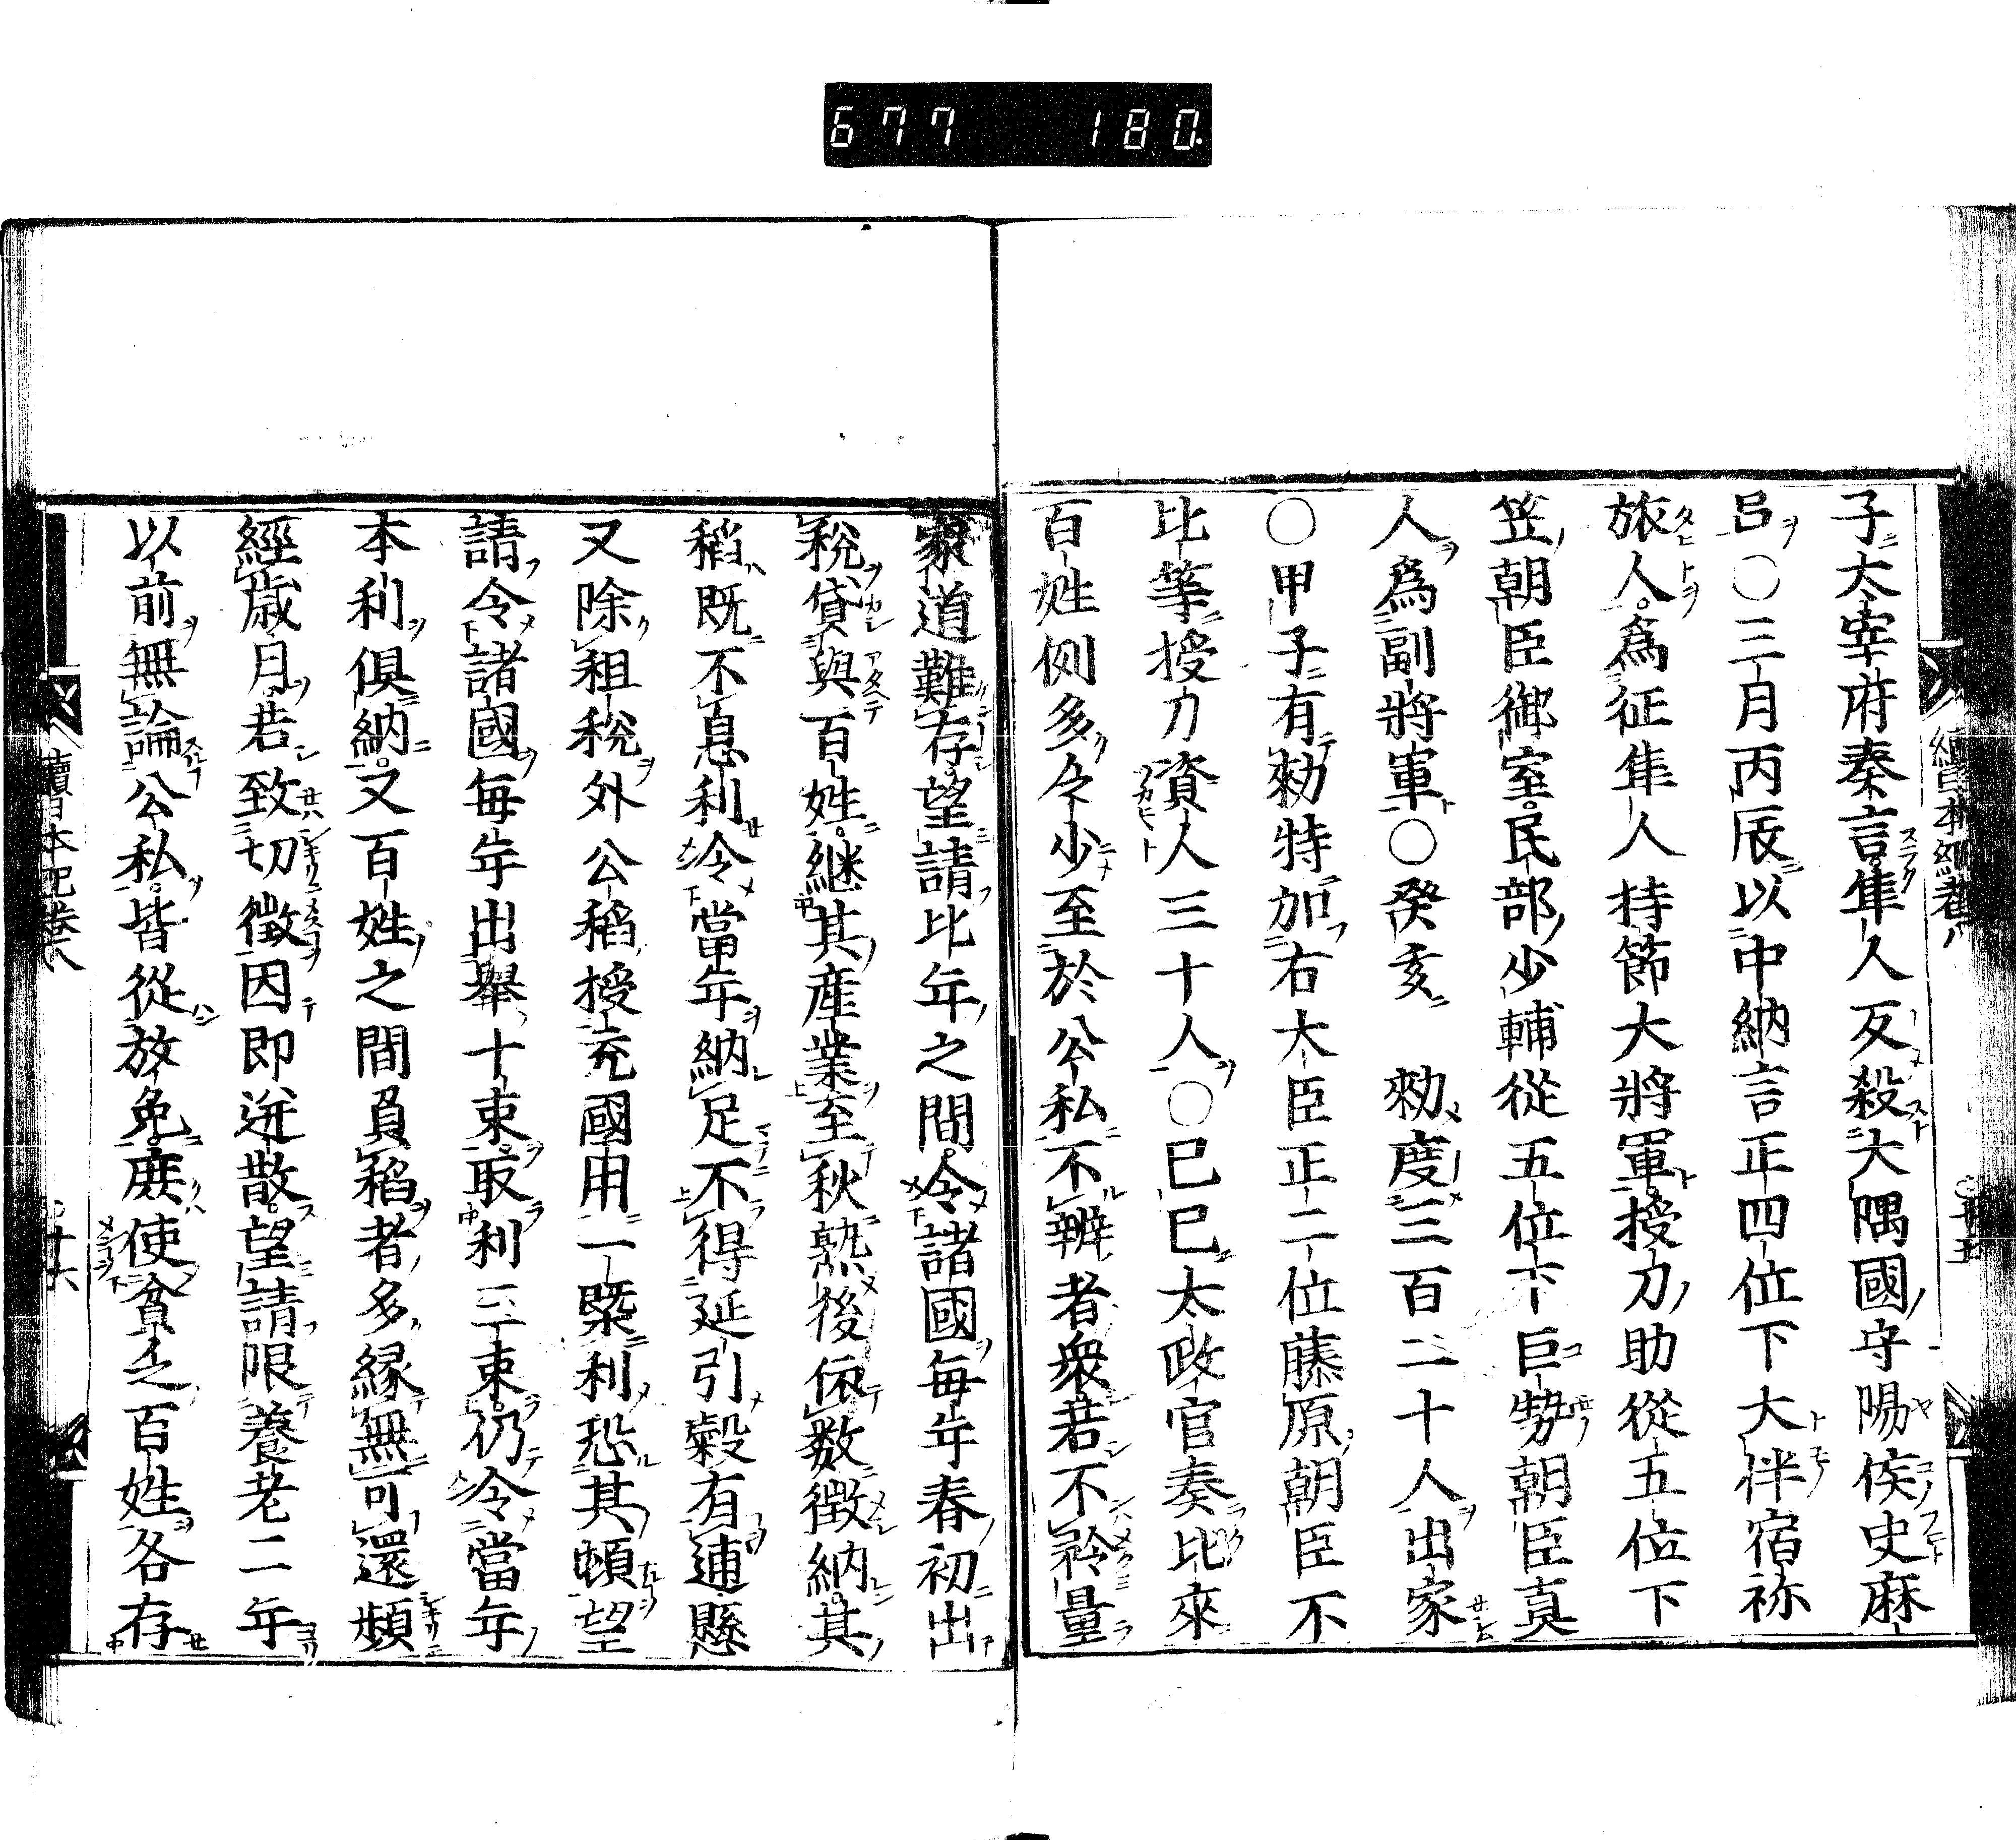 677 180.
續日本紀卷八 ○廿五
子太宰府奏言隼人反殺大隅國守陽侯史麻
呂○三月丙辰以中納言正四位下大伴宿祢
旅人爲征隼人持節大將軍授刀助從五位下
笠朝臣御室民部少輔從五位下巨勢朝臣真
人爲副將軍○癸亥 勑度三百二十人出家
○甲子有勑特加右大臣正二位藤原朝臣不
比等授刀資人三十人○己巳太政官奏比來
百姓例多乏少至於公私不辨者衆若不矜量
家道難存望請比年之間令諸國每年春初出
稅貸與百姓継其產業至秋熟後依数徵納其
稻既不息利令當年納足不得延引穀有逋懸
又除租稅外公稻授充國用一槩利恐其頓望
請令諸國每年出舉十束取利三束仍令當年
本利俱納又百姓之間負稻者多縁無可還頻
經歲月若致切徵因即逃散望請限養老二年
以前無論公私皆從放免庶使貧乏百姓各存
續日本紀卷八 ○廿六